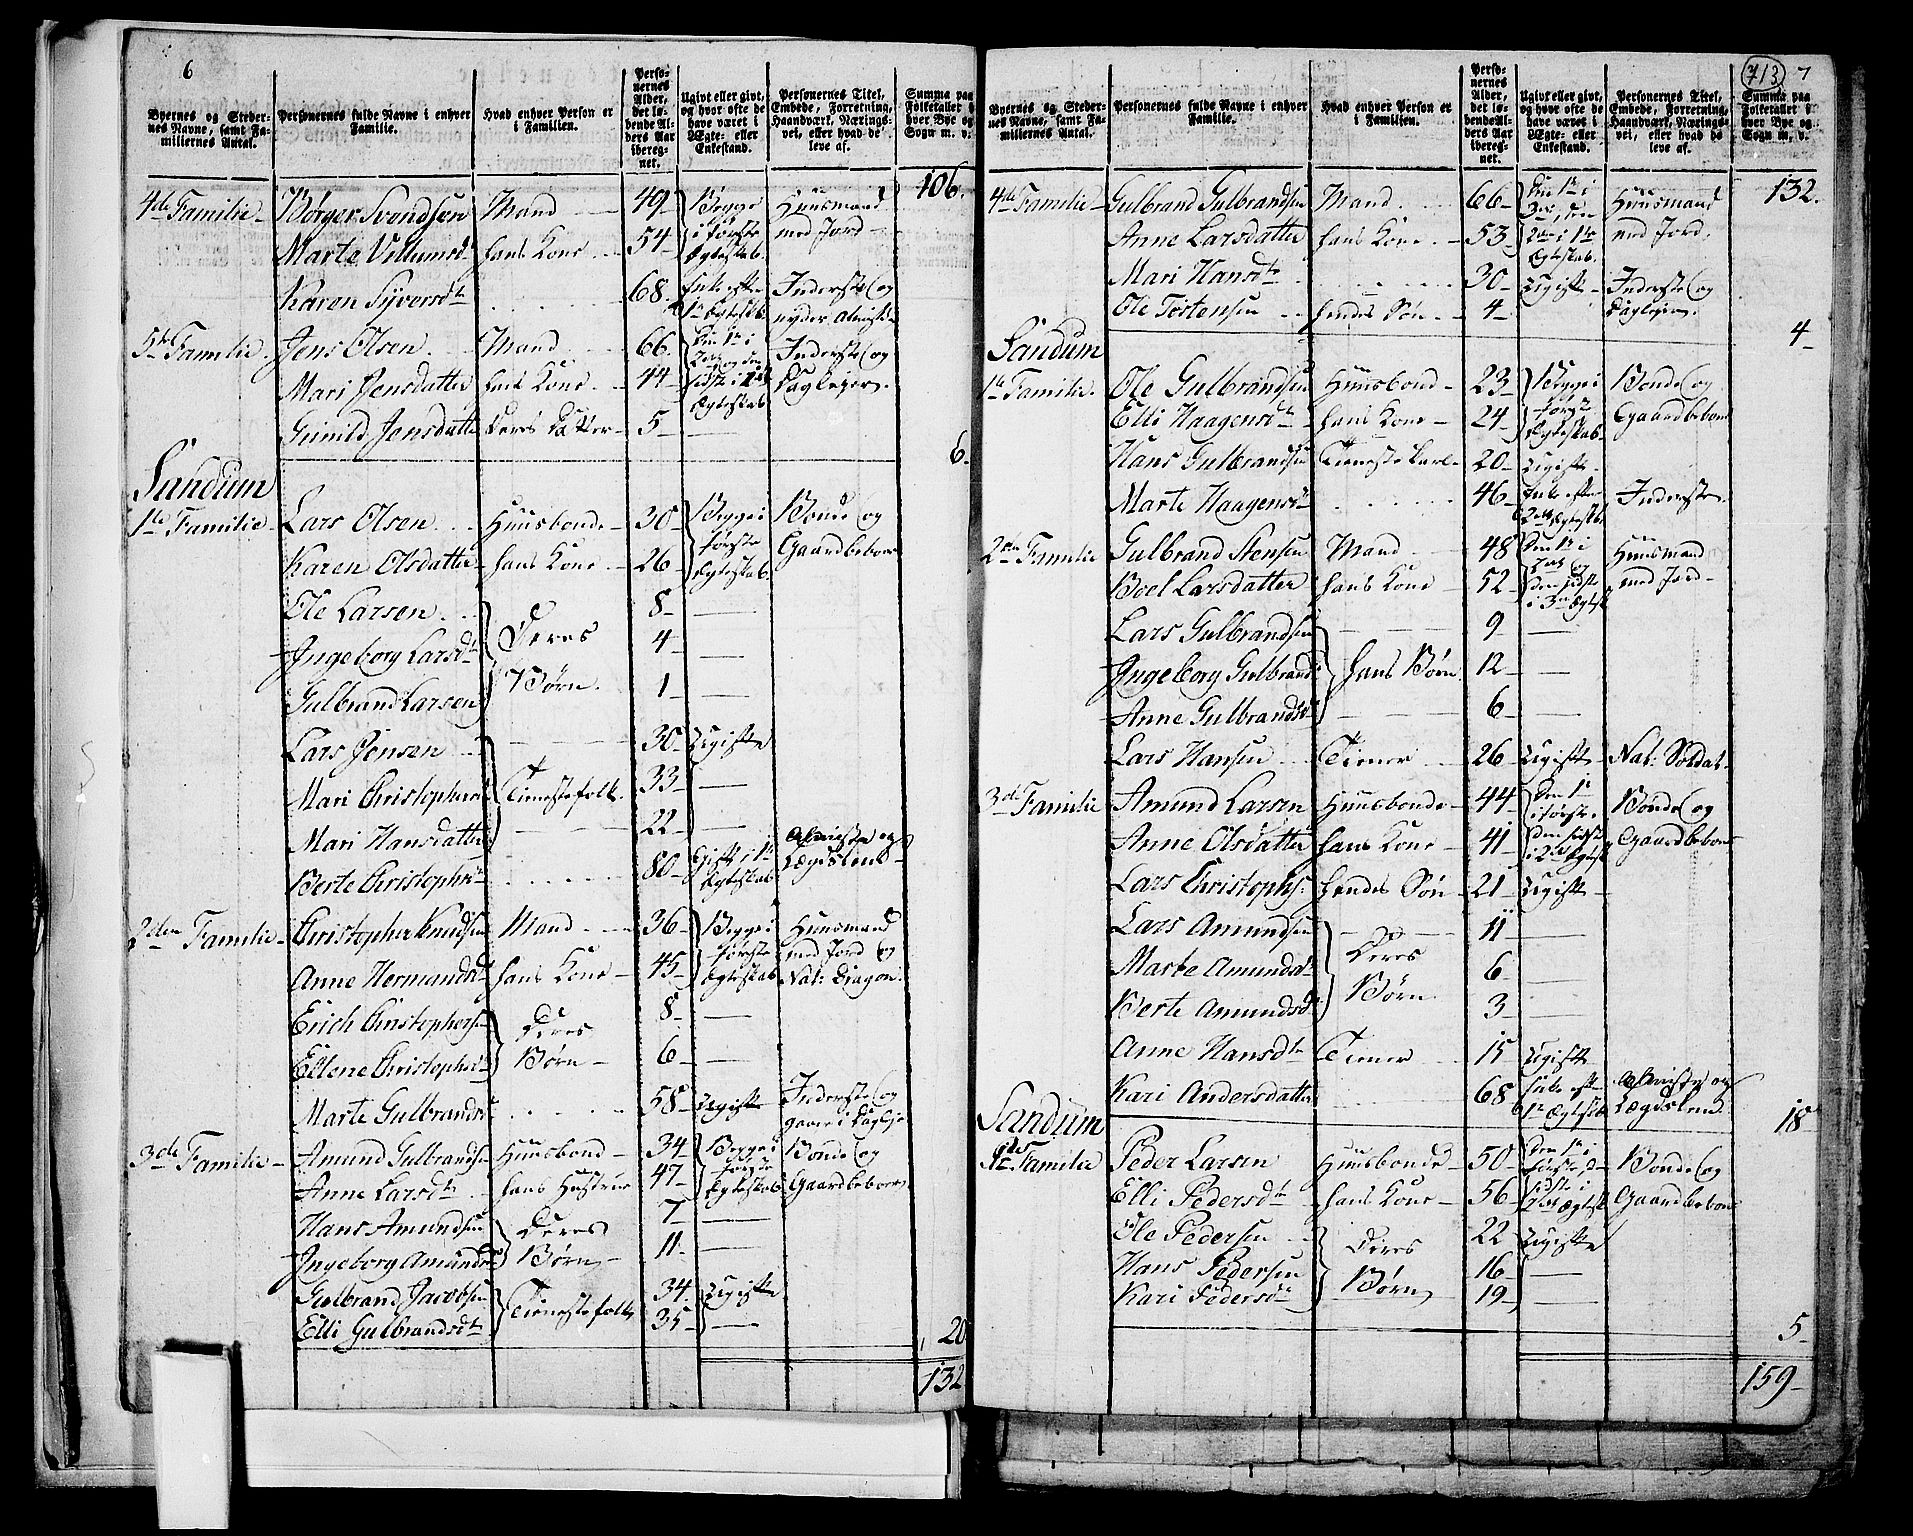 6
Byernes og Stedernes Navne, samt Familliernes Antal. | Personernes fulde Navne i enhver Familie. | Hvad enhver Person er i Familien. | Personernes Alder, det løbende Alders Aar iberegnet. | Ugivt eller givt, og hvor ofte de have været i Ægte- eller Enkestand. | Personernes Titel, Embede, Forretning, Haandværk, Næringsvei, eller hvad de leve af. | Summa paa Folketallet i hver Bye og Sogn m. v.
106.
4de Familie | Børger Svendsen | Mand | 49 | Begge i første Ægteskab. | Huusmand med Jord
Marte Villumsd | hans Kone | 54
Karen Syversdtr | 68. | Enke efter 1te Ægteskb. | Inderste og nyder Almisse
5te Familie. | Jens Olsen | Mand | 66. | Den 1te i 2det og den sidste i 1ste Ægteskab | Inderste og Dagleier.
Mari Jensdatter | hans Kone | 44
Gunild Jensdatter | Deres Datter | 5
6.
Sandum
1te Familie | Lars Olsen | Huusbonde | 30 | Begge i første Ægteskab. | Bonde og Gaardbeboer
Karen Olsdatter | hans Kone | 26
Ole Larsen | Deres Børn. | 8
Ingeborg Larsdtr | 4
Gulbrand Larsen | 1
Lars Jensen | Tienestefolk. | 30 | Ugift
Mari Christophersd | 33
Mari Hansdatter | 22
Berte Christophdtr | 80 | Gift i 1te Ægteskab | Almisse og Lægdslem
2den Familie | Christopher Knudsen | Mand | 36 | Begge i første Ægteskab | Huusmand med Jord og Nat: Dragon.
Anne Hermandsdt | hans Kone | 45
Erich Christophersen | Deres Børn | 8
Ellene Christophersdtr | 6
Marte Gulbrandsd | 58 | Ugift | Inderste og gaaer i Dagleje
3de Familie | Amund Gulbrandsen | Huusbond | 34 | Begge i første Ægteskab | Bonde og Gaardbeboer
Anne Larsdtr | hans Hustrue | 47
Hans Amundsen | Deres Børn | 7
Ingeborg Amundsd | 11
Gulbrand Jacobsen | Tienestefolk | 34. | Ugift
Elli Gulbrandsdtr | 35
20
132
713 7
Byernes og Stedernes Navne, samt Familliernes Antal. | Personernes fulde Navne i enhver Familie. | Hvad enhver Person er i Familien. | Personernes Alder, det løbende Alders Aar iberegnet. | Ugivt eller givt, og hvor ofte de have været i Ægte- eller Enkestand. | Personernes Titel, Embede, Forretning, Haandværk, Næringsvei, eller hvad de leve af. | Summa paa Folketallet i hver Bye og Sogn m. v.
132.
4de Familie | Gulbrand Gulbrandsen | Mand | 66 | Den 1te i 3die, den 2den i 1te Ægteskab. | Huusmand med Jord.
Anne Larsdatter | hans Kone | 53
Mari Hansdtr | 30 | Ugift | Inderste og Dagleier.
Ole Tostensen | hendes Søn | 4
4
Sandum
1te Familie. | Ole Gulbrandsen | Huusbond | 23 | Begge i første Ægteskab | Bonde og Gaardbeboer
Elli Haagensdtr | hans Kone | 24
Hans Gulbrandsen | Tienestekarl | 20 | Ugift
Marte Haagensdtr | 46 | Enke efter 2det Ægteskb | Inderste.
2den Familie | Gulbrand Stensen | Mand | 48 | Den 1te i 2det og den sidste i 3die Ægtesk | Huusmand med Jord
Boel Larsdatter | hans Kone | 52
Lars Gulbrandsen | hans Børn | 9
Ingeborg Gulbrandsd | 12
Anne Gulbrandsdtr | 6
Lars Hansen | Tiener | 26 | Ugift | Nat: Soldat.
3de Familie | Amund Larsen | Huusbonde | 44 | Den 1te i første, den sidste i 2det Ægtesk | Bonde og Gaardbeboer
Anne Olsdatter | hans Kone | 41
Lars Christophs: | hendes Søn | 21 | Ugift
Lars Amundsen | Deres Børn | 11
Marte Amundsdtr | 6
Berte Amundsd | 3
Anne Hansdtr | Tiener | 15 | Ugift
Kari Andersdatter | 68 | Enke eft 1te Ægteskb | Almisse og Lægdslem
18
Sandum
1te Familie | Peder Larsen | Huusbonde | 50 | Den 1te i første, d sidste i 2det Ægtesk | Bonde og Gaardbeboer
Elli Pedersdtr | hans Kone | 56
Ole Pedersen | Deres Børn | 22 | Ugift
Hans Pedersen | 16
Kari Pedersdtr | 19
5
159